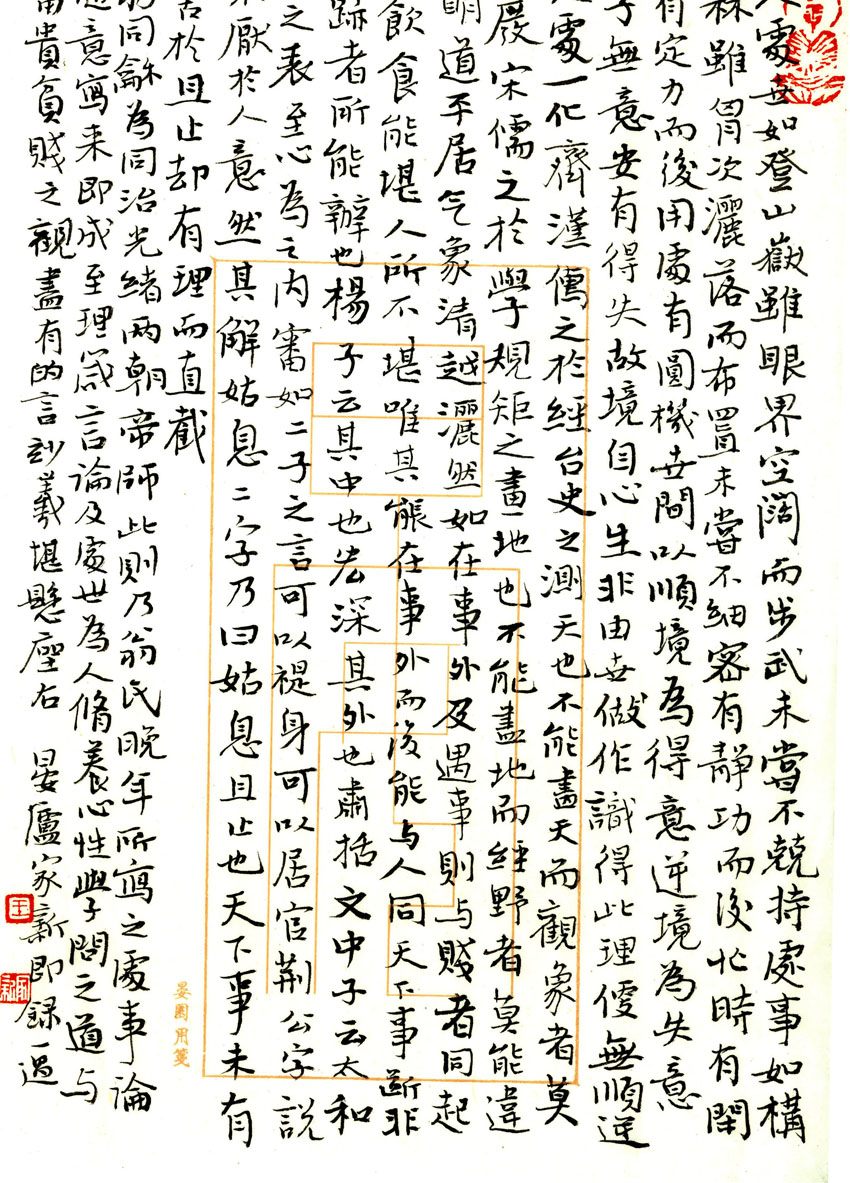 處世如登山嶽雖眼界空闊而步武未嘗不兢持處事如構
雖胷次灑落而布置未嘗不細密有靜功而後忙時有閑
有定力而後用處有圓機世間以順境為得意逆境為失意
無意安有得失故境自心生非由世做作識得此理便無順逆
處一化齊漢儒之於經台史之測天也不能盡天而觀象者莫
宋儒之於學規矩之畫地也不能盡地而經野者莫能違
明道平居气象清越灑然如在事外及遇事則与賤者同起
飲食能堪人所不堪唯其能在事外而後能与人同天下事斷非
跡者所能辦也楊子云其中也宏深其外也肅括文中子云太和
之表至心為之內審如二子之言可以禔身可以居官荊公字說
厭於人意然其解姑息二字乃曰姑息且止也天下事未有
於且止却有理而直截
同龢為同治光緒两朝帝師此則乃翁氏晚年所寫之處事論
意寫来即成至理箴言論及處世為人脩養心性學問之道与
富貴貧賤之觀盡有的言妙義堪懸座右 晏廬家新即錄一過
晏園用箋